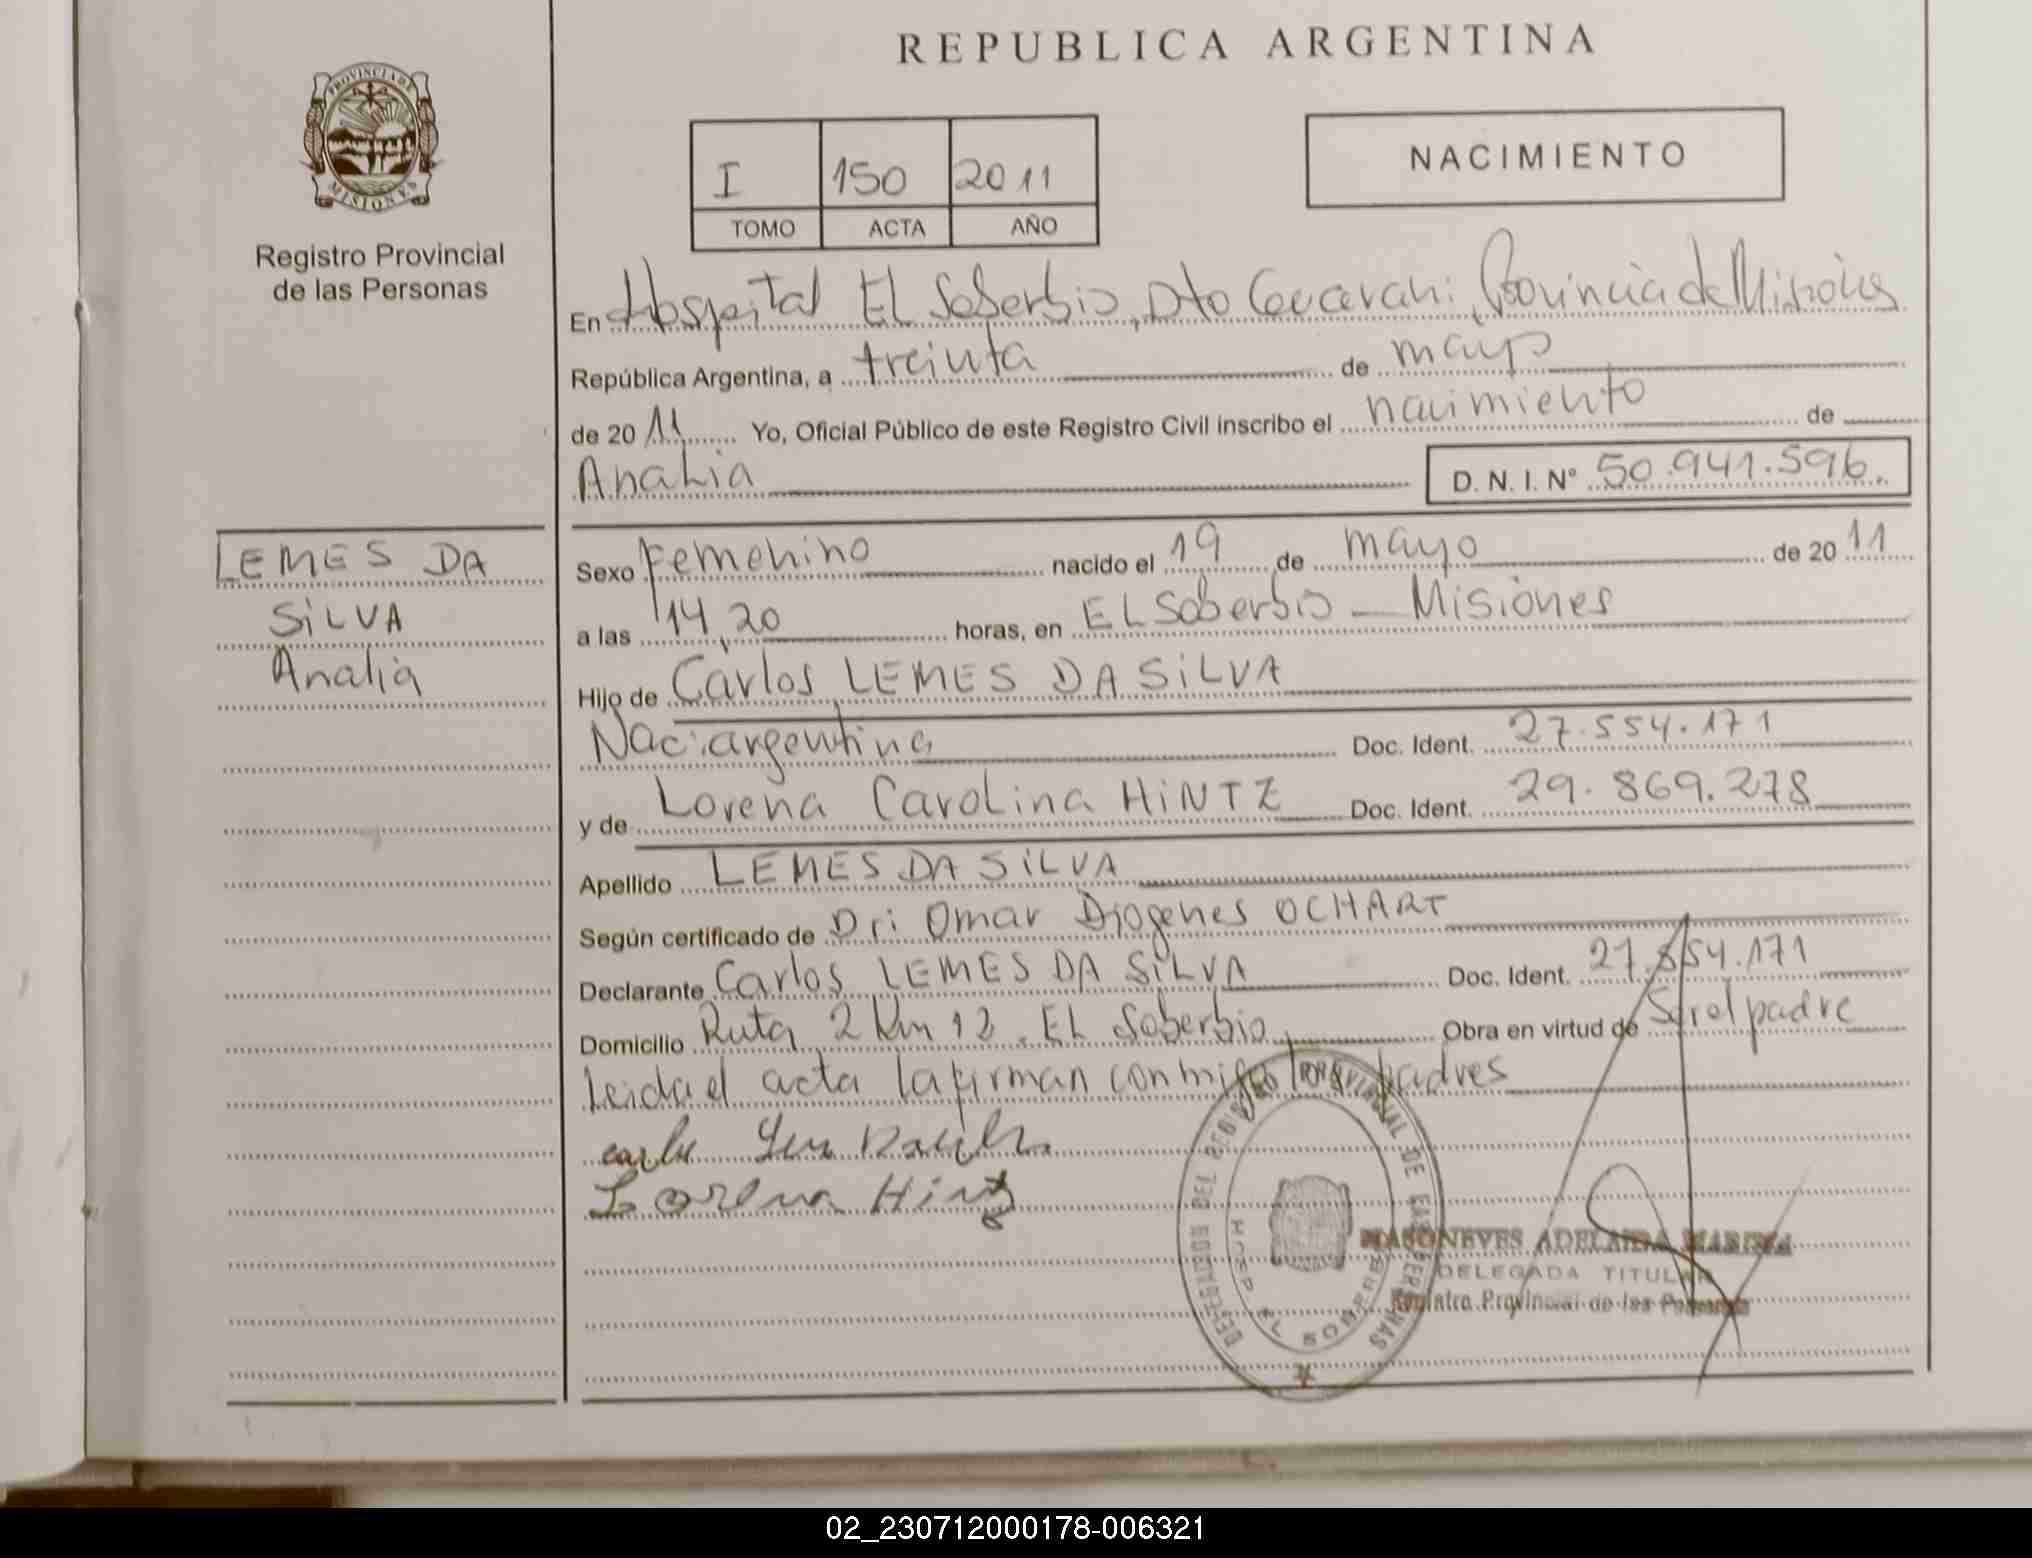 REPUBLICA ARGENTINA
PROVINCIA DE
MISIONES
Registro Provincial
de las Personas
I 150 2011
TOMO ACTA AÑO
NACIMIENTO
En Hospital EL Soberbio, Dto Guarani, Provincia de Misiones
República Argentina, a treinta de mayo
de 20 11 Yo, Oficial Público de este Registro Civil inscribo el nacimiento de
Analia D. N. I. Nº 50.941.596.
LEMES DA
SiLVA
Analia
Sexo Femenino nacido el 19 de mayo de 20 11
a las 14,20 horas, en EL Soberbio - Misiones
Hijo de Carlos LEMES DA SiLVA
Nac. argentina Doc. Ident. 27.554.171
y de Lorena Carolina HiNTZ Doc. Ident. 29.869.278
Apellido LEMES DA SiLVA
Según certificado de Dr. Omar Diogenes OCHART
Declarante Carlos LEMES DA SiLVA Doc. Ident. 27.554.171
Domicilio Ruta 2 Km 12. EL Soberbio Obra en virtud de Ser el padre
Leida el acta la firman conmigo los padres
Lorena Hintz
DELEGADA TITULAR
Registro Provincial de las Personas
02_230712000178-006321